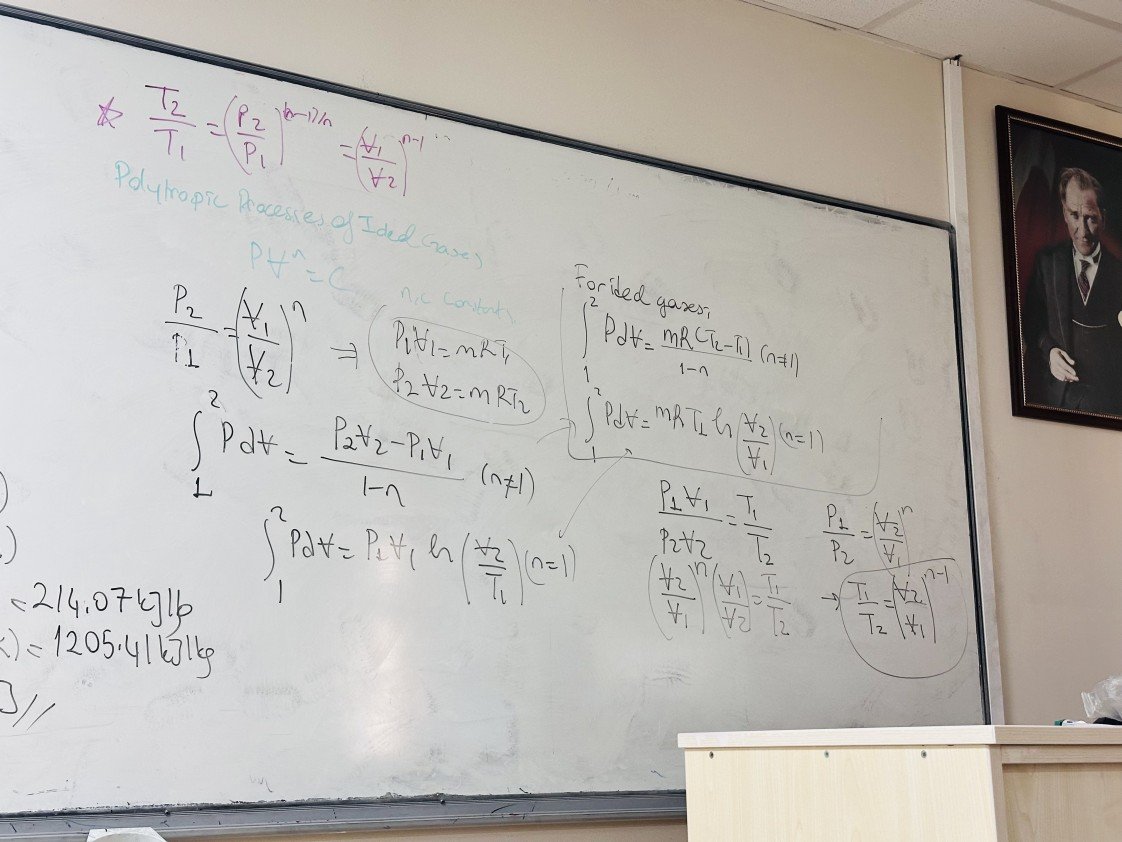 ☆ T2/T1 = (P2/P1)^(n-1)/n = (V1/V2)^n-1
Polytropic Processes of Ideal Gases
PV^n = C
n,c constant
P2/P1 = (V1/V2)^n ⇒
P1V1 = mRT1
P2V2 = mRT2
∫₁² PdV = (P2V2-P1V1)/(1-n) (n≠1)
∫₁² PdV = P1V1 ln (V2/T1) (n=1)
For ideal gases,
∫₁² PdV = mR(T2-T1)/(1-n) (n≠1)
∫₁² PdV = mRT1 ln (V2/V1) (n=1)
P1V1/P2V2 = T1/T2
P1/P2 = (V2/V1)^n
(V2/V1)^n (V1/V2) = T1/T2
→ T1/T2 = (V2/V1)^n-1
= 214.07 kJ/lb
) = 1205.41 kJ/kg